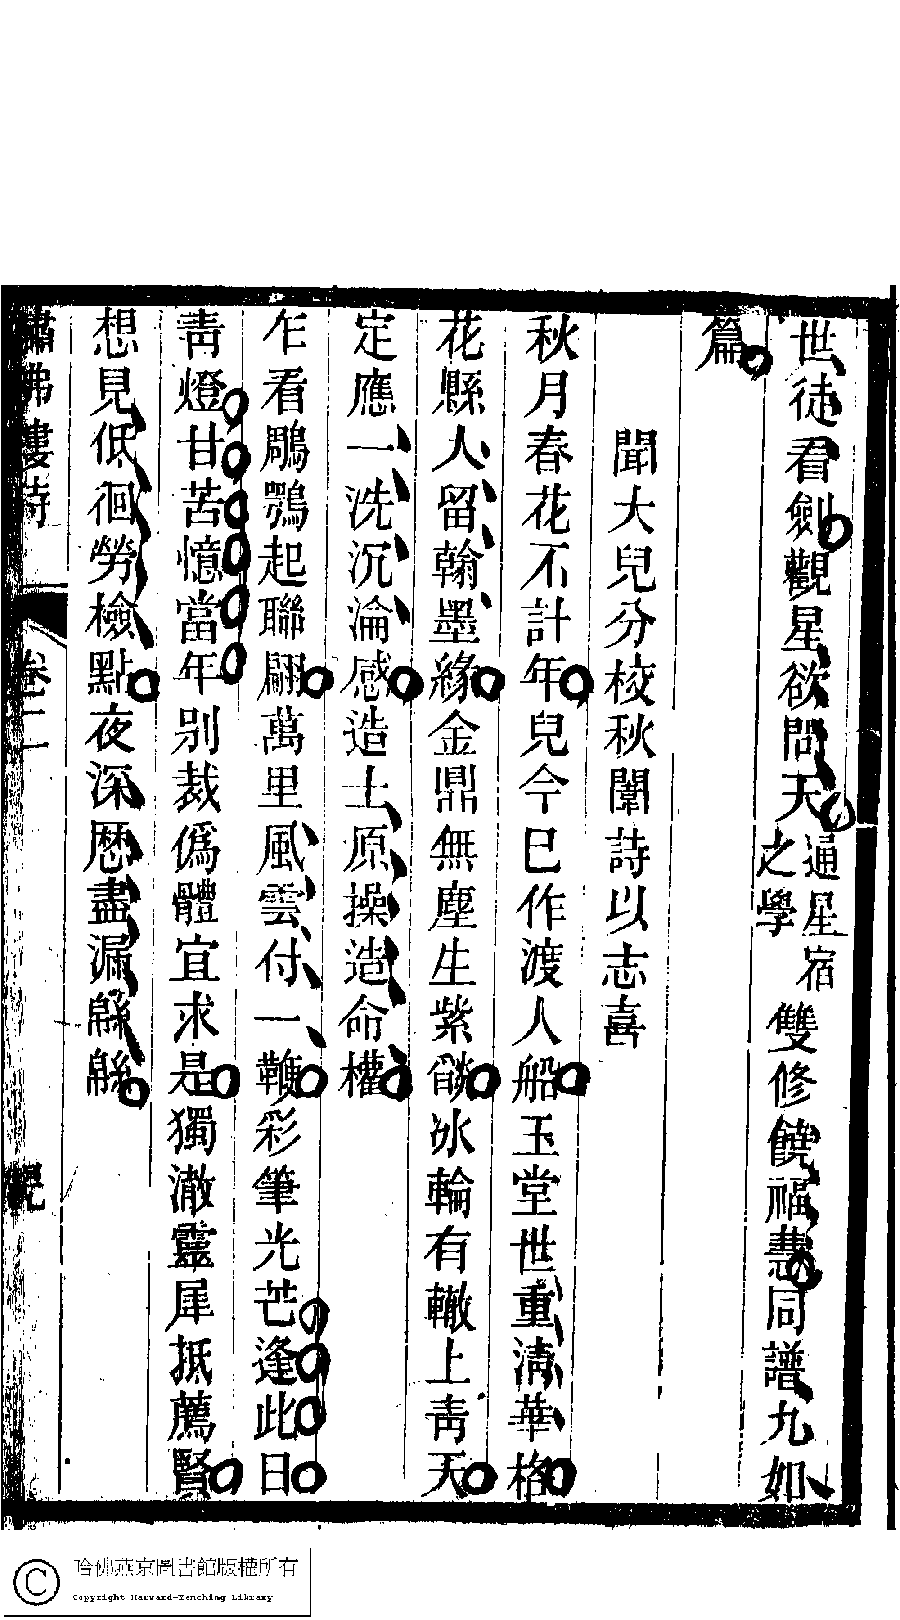 世徒看劍觀星欲問天通星宿之學雙修饒福慧同譜九如
篇
聞大兒分校秋闈詩以志喜
秋月春花不計年兒今巳作渡人船玉堂世重清華格
花縣人留翰墨緣金鼎無塵生紫燄冰輪有轍上青天
定應一洗沉淪感造士原操造命權
乍看鵰鶚起聯翩萬里風雲付一鞭彩筆光芒逢此日
青燈甘苦憶當年別裁偽體宜求是獨澈靈犀抵薦賢
想見低徊勞檢點夜深歷盡漏緜緜
繡佛樓詩
卷二
哈佛燕京圖書館版權所有
Copyright Harvard-Yenching Library